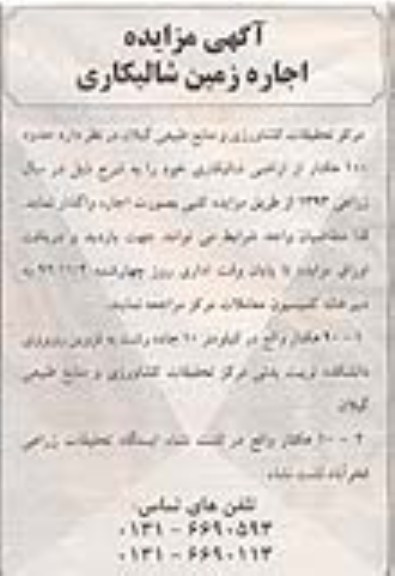 آگهی مزایده
اجاره زمین شالیکاری
مرکز تحقیقات کشاورزی و منابع طبیعی گیلان در نظر دارد حدود
۱۰۰ هکتار از اراضی شالیکاری خود را به شرح ذیل در سال
زراعی ۱۳۹۳ از طریق مزایده کتبی بصورت اجاره واگذار نماید.
لذا متقاضیان واجد شرایط می توانند جهت بازدید و دریافت
اوراق مزایده تا پایان وقت اداری روز چهارشنبه به
دبیرخانه کمیسیون معاملات مرکز مراجعه نمایند.
۱ - ۹۰ هکتار واقع در کیلومتر ۱۰ جاده رشت به قزوین روبروی
دانشکده تربیت بدنی مرکز تحقیقات کشاورزی و منابع طبیعی
گیلان
۲ - ۱۰ هکتار واقع در ایستگاه تحقیقات زراعی
تلفن های تماس:
۰۱۳۱ - ۶۶۹۰۵۹۳
۰۱۳۱ - ۶۶۹۰۱۱۳